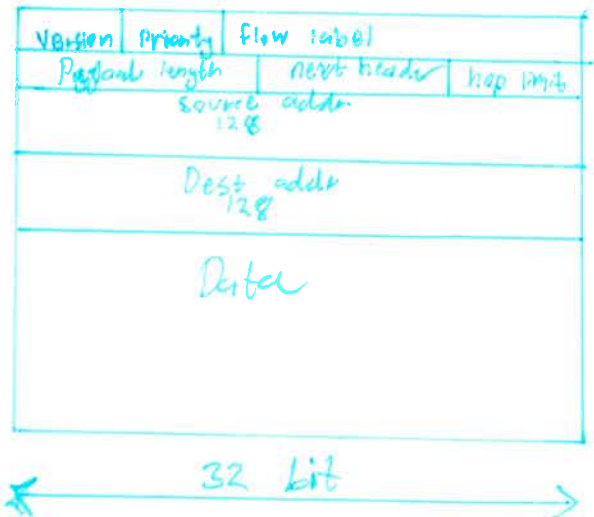 Version Priority flow label
Payload length next header hop limit
source addr
128
Dest addr
128
Data
32 bit